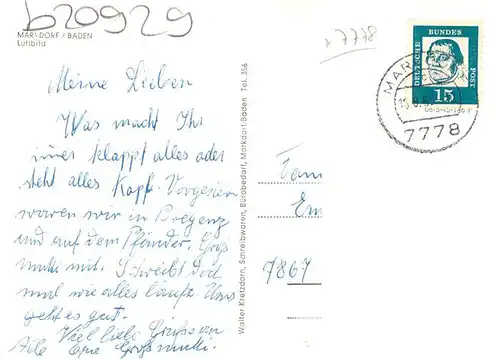 b20929
MARKDORF / BADEN
Luftbild
+ 7778
DEUTSCHE BUNDESPOST
15
7778
Meine Lieben
Was macht Ihr
immer klappt alles oder
steht alles Kopf. Vorgestern
waren wir in Bregenz
und auf dem Pfänder. Groß
mutti mit. Schreibt doch
mal wie alles läuft. Uns
geht es gut.
Viel liebe Grüße von
Opa Großmutti.
Walter Kretzdorn, Schreibwaren, Bürobedarf, Markdorf/Baden Tel. 356
Fam
Em
7867